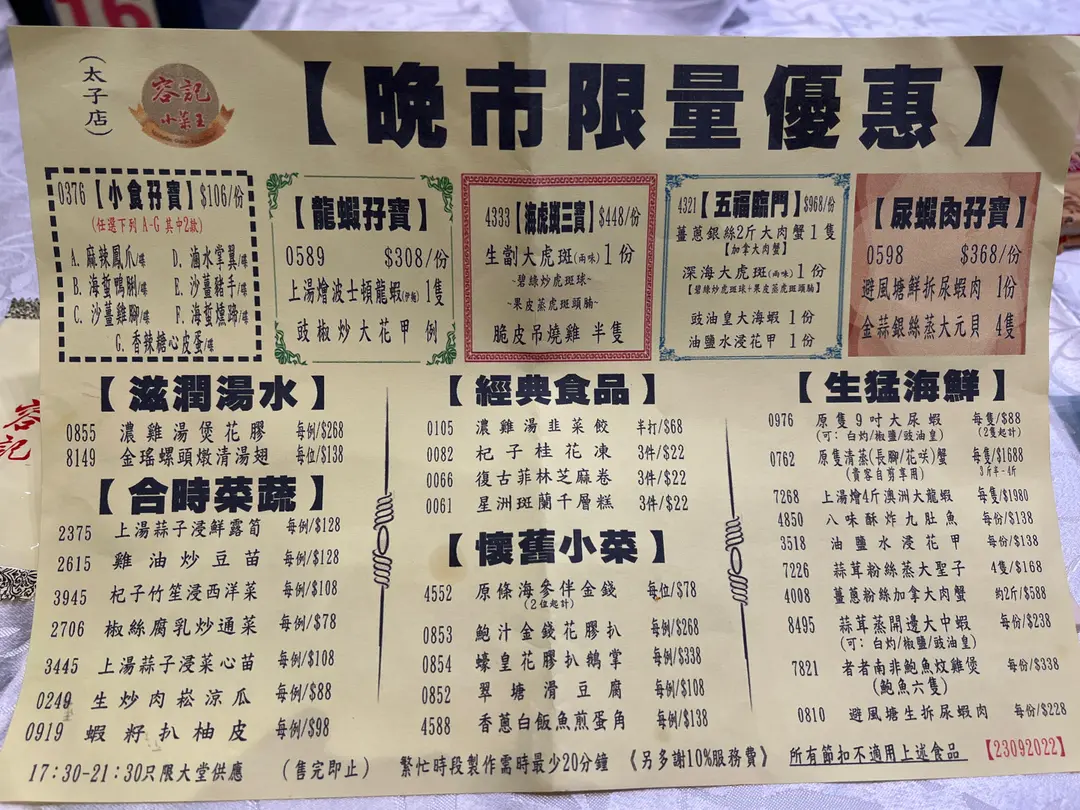 16
(太子店)
容記
小菜王
【晚市限量優惠】
0376【小食孖寶】$106/份
(任選下列 A-G 其中2款)
A. 麻辣鳳爪/碟
D. 滷水掌翼/碟
B. 海蜇鴨脷/碟
E. 沙薑豬手/碟
C. 沙薑雞腳/碟
F. 海蜇燻蹄/碟
G. 香辣糖心皮蛋/碟
【龍蝦孖寶】
0589 $308/份
上湯燴波士頓龍蝦(伊麵)1隻
豉椒炒大花甲 例
4333【海虎斑三寶】$448/份
生劏大虎斑(兩味)1份
~碧綠炒虎斑球~
~果皮蒸虎斑頭腩~
脆皮吊燒雞 半隻
4321【五福臨門】$968/份
薑蔥銀絲2斤大肉蟹1隻
【加拿大肉蟹】
深海大虎斑(兩味)1份
【碧綠炒虎斑球+果皮蒸虎斑頭腩】
豉油皇大海蝦1份
油鹽水浸花甲1份
【尿蝦肉孖寶】
0598 $368/份
避風塘鮮拆尿蝦肉 1份
金蒜銀絲蒸大元貝 4隻
【滋潤湯水】
0855 濃雞湯煲花膠 每例/$268
8149 金瑤螺頭燉清湯翅 每位/$138
【合時菜蔬】
2375 上湯蒜子浸鮮露筍 每例/$128
2615 雞油炒豆苗 每例/$128
3945 杞子竹笙浸西洋菜 每例/$108
2706 椒絲腐乳炒通菜 每例/$78
3445 上湯蒜子浸菜心苗 每例/$108
0249 生炒肉崧涼瓜 每例/$88
0919 蝦籽扒柚皮 每例/$98
【經典食品】
0105 濃雞湯韭菜餃 半打/$68
0082 杞子桂花凍 3件/$22
0066 復古菲林芝麻卷 3件/$22
0061 星洲斑蘭千層糕 3件/$22
【懷舊小菜】
4552 原條海參伴金錢 每位/$78
(2位起計)
0853 鮑汁金錢花膠扒 每例/$268
0854 蠔皇花膠扒鵝掌 每例/$338
0852 翠塘滑豆腐 每例/$108
4588 香蔥白飯魚煎蛋角 每例/$138
【生猛海鮮】
0976 原隻9吋大尿蝦 每隻/$88
(可: 白灼/椒鹽/豉油皇) (2隻起計)
0762 原隻清蒸(長腳/花咲)蟹 每隻/$1688
(貴客自剪享用) 3斤半-4斤
7268 上湯燴4斤澳洲大龍蝦 每隻/$1980
4850 八味酥炸九肚魚 每份/$138
3518 油鹽水浸花甲 每份/$138
7226 蒜茸粉絲蒸大聖子 4隻/$168
4008 薑蔥粉絲加拿大肉蟹 約2斤/$588
8495 蒜茸蒸開邊大中蝦 每份/$238
(可: 白灼/椒鹽/豉油皇)
7821 者者南非鮑魚炆雞煲 每份/$338
(鮑魚六隻)
0810 避風塘生拆尿蝦肉 每份/$228
17:30-21:30只限大堂供應 (售完即止) 繁忙時段製作需時最少20分鐘 《另多謝10%服務費》 所有節扣不適用上述食品 【23092022】
容記